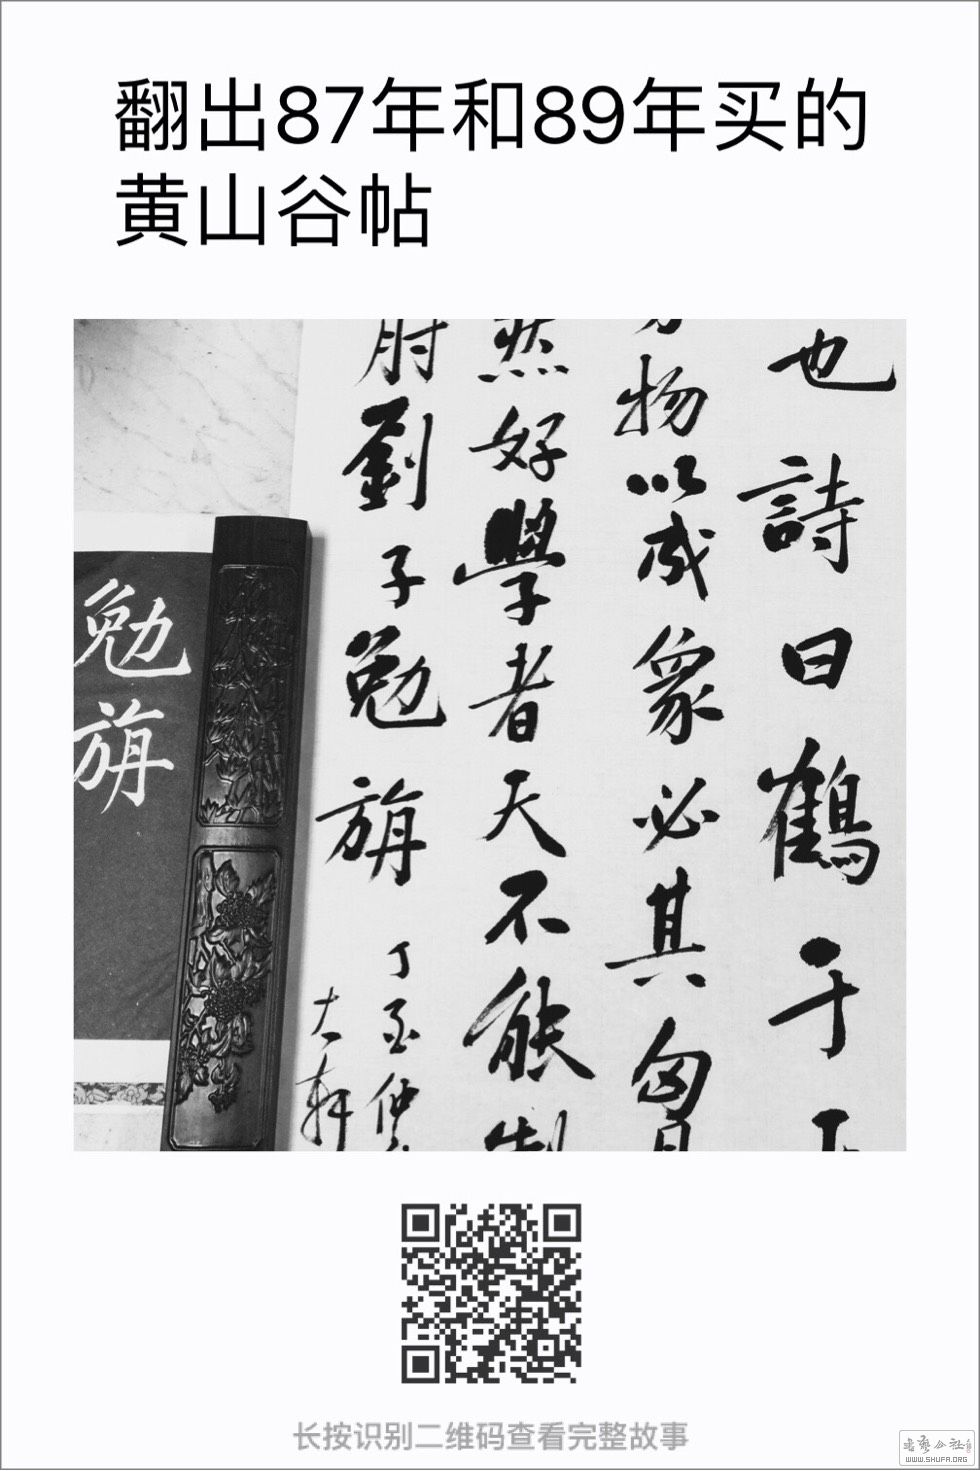 翻出87年和89年买的
黄山谷帖
也詩曰鶴于
物以成象必其
然好學者天不能
肘劉子勉旃
丁酉仲
大軒
勉旃
长按识别二维码查看完整故事
书艺公社
WWW.SHUFA.ORG